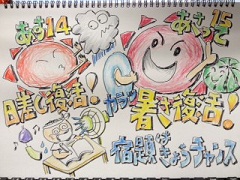 あす14
あさって15
日差し復活!
カラッと
暑さ復活!
宿題は
きょうがチャンス